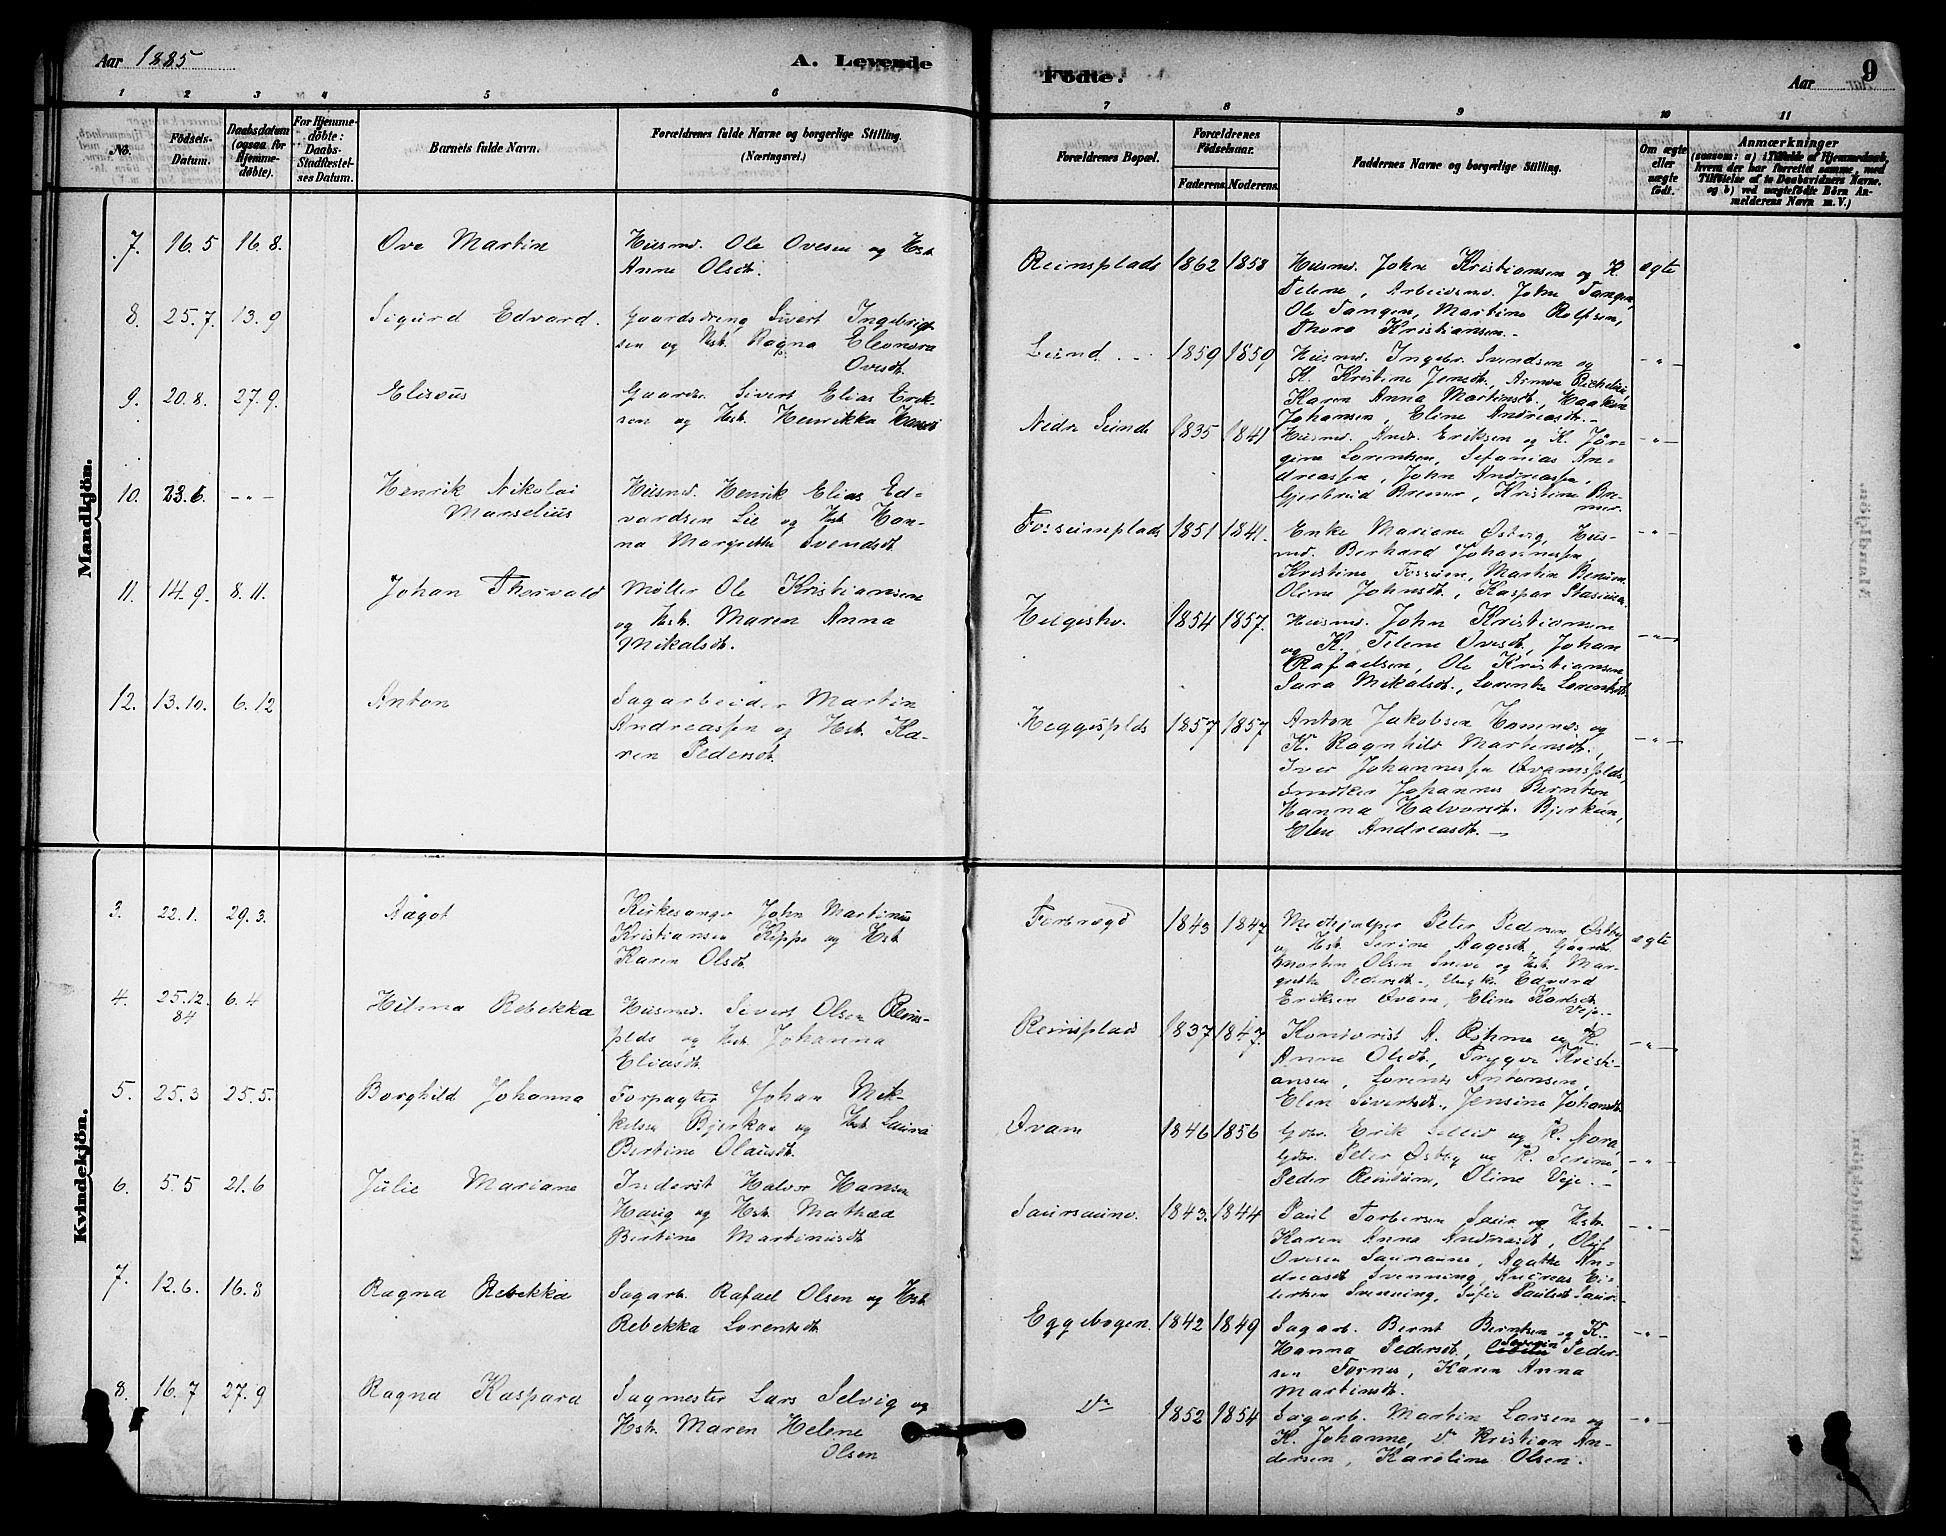 Aar 1885
A. Levende
Fødte.
Aar
9
1 2 3 4 5 6 7 8 9 10 11
No.
Fødsels-
Datum.
Daabsdatum
(ogsaa for
Hjemme-
døbte).
For Hjemme-
døbte:
Daabs-
Stadfæstel-
ses Datum.
Barnets fulde Navn.
Forældrenes fulde Navne og borgerlige Stilling.
(Næringsvei.)
Forældrenes Bopæl.
Forældrenes
Fødselsaar.
Faderens. Moderens.
Faddernes Navne og borgerlige Stilling.
Om ægte
eller
uægte
født.
Anmærkninger
(saasom: a) i Tilfælde af Hjemmedaab,
hvem der har forrettet samme, med
Tilføielse af to Daabsvidners Navne,
og b) ved uægtefødte Børn An-
melderens Navn m. V.)
Mandkjøn.
7. 16.5 16.8. Ove Martin
Husmd. Ole Ovesen og Hst.
Anne Olsdt.
Reinsplads 1862 1858
Husmd. John Kristiansen og K.
Telene, Arbeidsmd. John Tangen,
Ole Tangen, Martine Rolfsen,
Thora Kristiansen.
ægte
8. 25.7. 13.9 Sigurd Edvard.
Gaardsdreng Sivert Ingebrigt-
sen og Hst. Ragna Eleonora
Ovesdt.
Leind 1859 1859
Husmd. Ingebr. Svendsen og
K. Kristine Jensdt.,
Karen Anna Martinsdt., Haakon
Johansen, Eline Andreasdt.
-"-
9. 20.8. 27.9. Elisæus
Gaardbr. Sivert Elias Erik-
sen og Hst. Henrikka Hansdt
Nedre 1835 1841
Husmd. Andr. Eriksen og K. Jør-
gine Lorentsen, Sefanias An-
dreassen, John Andreassen,
Gjertrud Bremer, Kristine Bre-
mer.
-"-
10. 23.6. -"- Henrik Nikolai
Marselius
Husmd. Henrik Elias Ed-
vardsen Lie og Hst. Han-
na Margrethe Svendsdt.
Fossumsplads 1851 1841.
Enke Mariane Østvig, Hus-
md. Berhard Johannessen,
Kristine Fossum, Martin
Oline Johnsdt., Kaspar
-"-
11. 14.9. 8.11. Johan Thorvald
Møller Ole Kristiansen
og Hst. Maren Anna
Mikalsdt.
1854 1857.
Husmd. John Kristiansen
og K. Telene Ovesdt., Johan
Rafaelsen, Ole Kristiansen
Sara Mikalsdt., Lorentse Lorentsdt.
-"-
12. 13.10. 6.12 Anton
Sagarbeider Martin
Andreassen og Hst. Ka-
ren Pedersdt.
Heggesplds 1857 1857.
Anton Jakobsen Hamnes og
K. Ragnhild Martinsdt.,
Iver Johannessen Ovamsplds,
Snedker Johannes Berntsen
Hanna Halvorsdt. Bjerkan,
Elen Andreasdt.
-"-
Kvindekjøn.
3. 22.1. 29.3. Aagot
Kirkesanger John Martinus
Kristiansen Kippe og Hst.
Karen Olsdt.
Forbregd 1843 1847
Medhjælper Peter Pedersen Østby
og Hst. Serine Aagesdt., Gaardbr.
Morten Olsen og Hst. Mar-
grethe Pedersdt., Ungk. Edvard
Eriksen Ovam, Eline Karlsdt.
Veje.
ægte
4. 25.12.
84 6.4 Hilma Rebekka
Husmd. Sivert Olsen Reins-
plds og Hst. Johanna
Eliasdt.
Reinsplads 1837 1847.
A. Røhme og K.
Anne Olsdt., Trygve Kristi-
ansen, Lorents Antonsen,
Elen Sivertsdt., Jensine Johansdt.
-"-
5. 25.3 25.5. Borghild Johanna
Forpagter Johan Mik-
kelsen Bjerkan og Hst. Laura
Bertine Olausdt.
Ovam 1846 1856
Gdbr. Erik og K. Nora,
Gdbr. Peter Østby og K. Serine,
Peder Reindum, Oline Veje.
-"-
6. 5.5 21.6 Julie Mariane
Inderst Halvor Hansen
Haug og Hst. Mathea
Bertine Martinusdt.
1843. 1844
Paul Torbersen og Hst.
Karen Anna Andreasdt., Oluf
Ovesen, Agathe An-
dreasdt. Svenning, Andreas
Svenning, Sofie Paulsdt.
-"-
7. 12.6. 16.8 Ragna Rebekka
Sagarb. Rafael Olsen og Hst.
Rebekka Lorentsdt.
Eggebogen. 1842 1849
Sagarb. Bernt Berntsen og K.
Hanna Pedersdt., Severin Peder-
sen Fornes, Karen Anna
Martinsdt.
-"-
8. 16.7 27.9 Ragna Kaspara
Sagmester Lars Selvig og
Hst. Maren Helene
Olsen
Do 1852 1854
Sagarb. Martin Larsen og
K. Johanne, Do Kristian An-
dersen, Karoline Olsen.
-"-